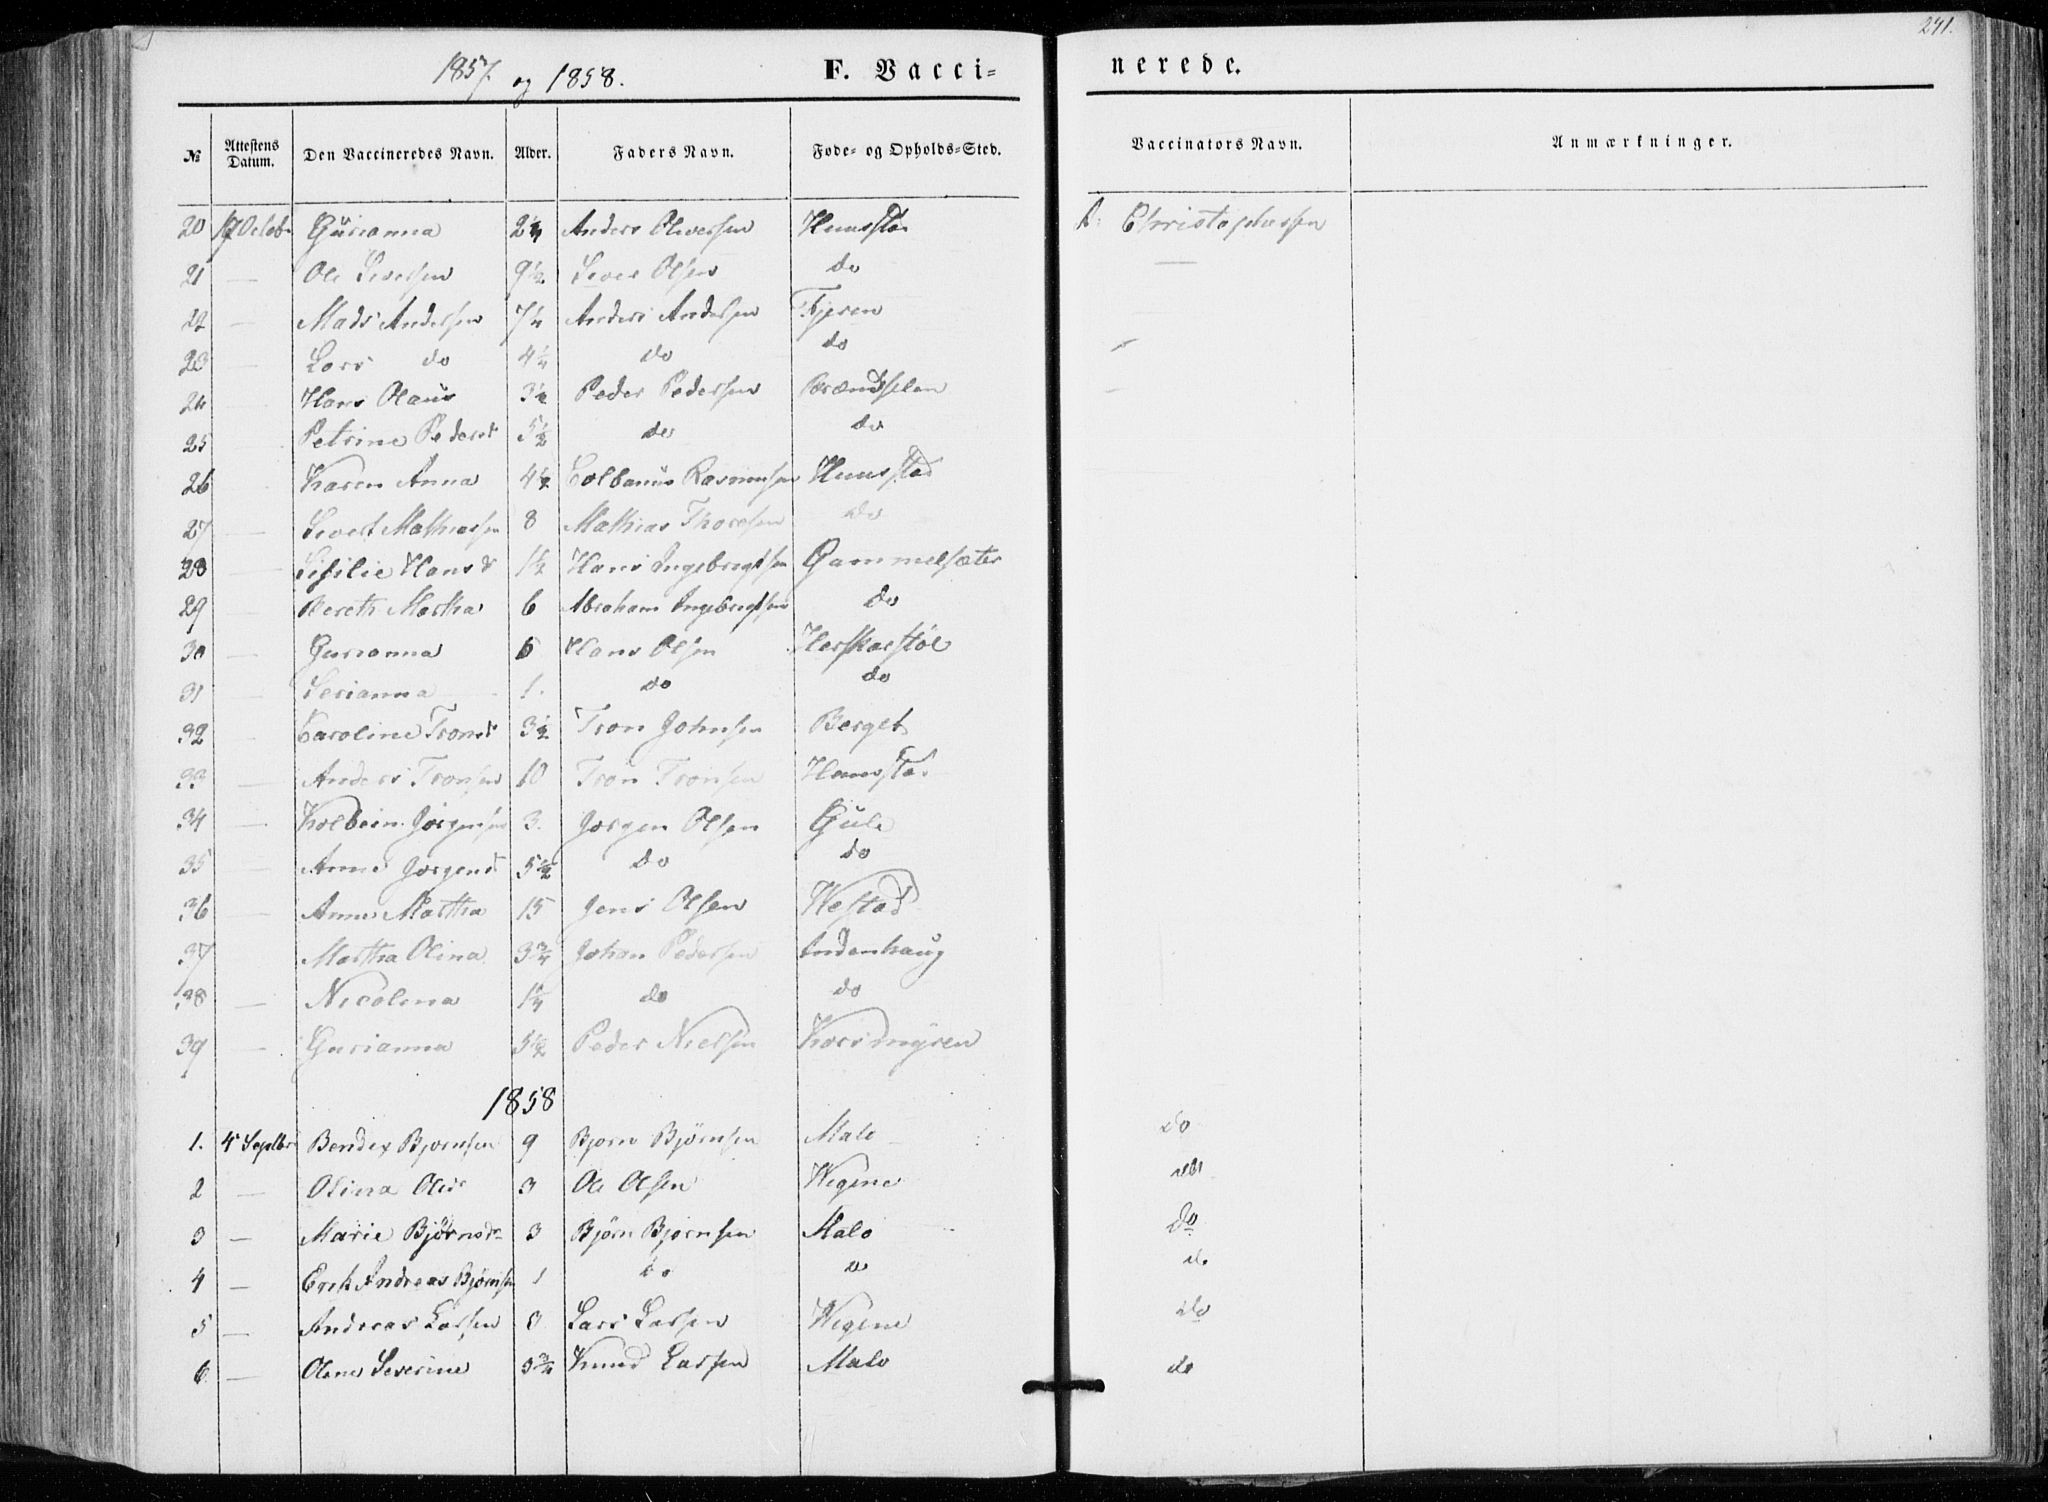 241.
1857. og 1858. F. Vacci- nerede.
№ Attestens Datum. Den Vaccineredes Navn. Alder. Faders Navn. Føde- og Opholds-Sted. Vaccinators Navn. Anmærkninger.
20 17 Octob Gurianna 2¼ Anders Olversen Humstad Christophersen
21 — Ole Siversen 9½ Siver Olsen do —
22 — Mads Andersen 7¼ Anders Andersen Fjeren
23 — Lars do 4¼ do do
24 Hans Olaus 3½ Peder Pedersen Brændselen
25 Petrine Pedersd 5½ do do
26 — Karen Anna 4½ Colbanus Rasmussen Humstad
27 — Sivert Mathiassen 8 Mathias Thoresen do
28 — Sisilie Hansd 1½ Hans Ingebregtsen Gammelsæter
29 — Bereth Martha 6 Abraham Ingebregtsen do
30 — Gurianna 6 Hans Olsen Herskarstøl
31 — Serianna 1. do do
32 — Caroline Tronsd 3½ Tron Johnsen Berget
33 — Anders Tronsen 10 Tron Tronsen Humstad
34 — Kolbein Jørgensen 3. Jørgen Olsen Gule
35 — Anne Jørgensd 5½ do do
36 — Anne Martha 15 Jens Olsen Westad
37 — Martha Olina 3¾ Johan Pedersen Indenhaug
38 — Nicolina 1¼ do do
39 — Gurianna 5½ Peder Nielsen Korsdmyren
1858
1. 4 Septbr Bendix Bjørnsen 9 Bjørn Bjørnsen Malo do
2 — Olina Olsd 3 Ole Olsen Wegene do
3 — Marie Bjørnsdr 3 Bjørn Bjørnsen Malo do
4 — Erik Andreas Bjørnsen 1 do do do
5 — Andreas Larsen Lars Larsen Wegene do
6 — Olene Severine 3¾ Knud Larsen Malo do